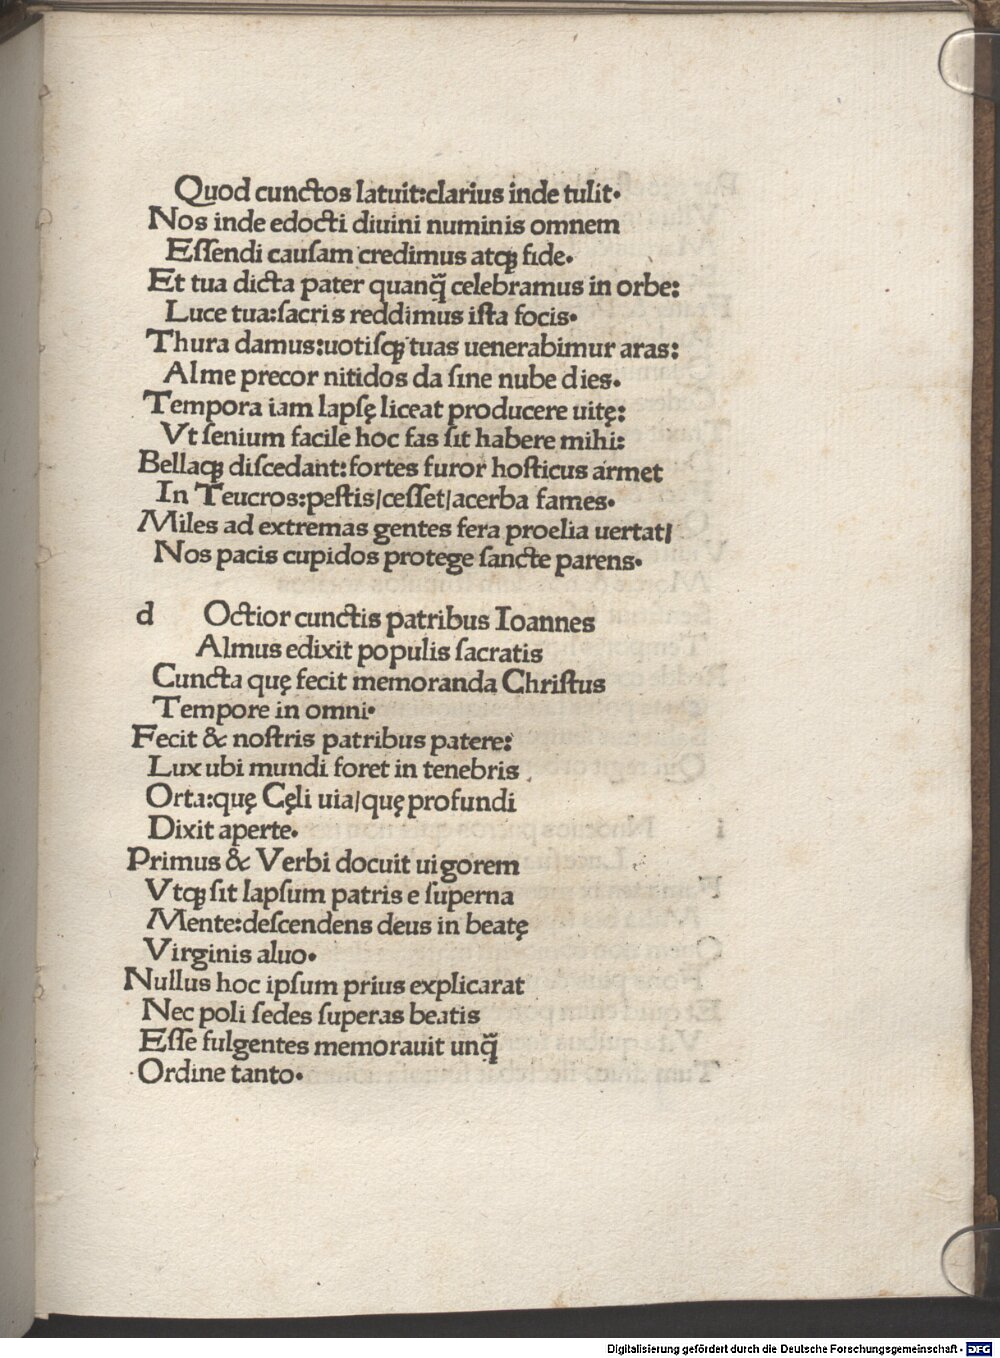 Quod cunctos latuit:clarius inde tulit·
Nos inde edocti diuini numinis omnem
Eſſendi cauſam credimus atqꝫ fide·
Et tua dicta pater quanq̃ celebramus in orbe:
Luce tua:ſacris reddimus iſta focis·
Thura damus:uotiſqꝫ tuas uenerabimur aras:
Alme precor nitidos da ſine nube dies·
Tempora iam lapſę liceat producere uitę:
Vt ſenium facile hoc fas ſit habere mihi:
Bellaqꝫ diſcedant:fortes furor hoſticus armet
In Teucros:peſtis/ceſſet/acerba fames·
Miles ad extremas gentes fera proelia uertat/
Nos pacis cupidos protege ſancte parens·
d Octior cunctis patribus Ioannes
Almus edixit populis ſacratis
Cuncta quę fecit memoranda Chriſtus
Tempore in omni·
Fecit & noſtris patribus patere:
Lux ubi mundi foret in tenebris
Orta:quę Cęli uia/quę profundi
Dixit aperte·
Primus & Verbi docuit uigorem
Vtqꝫ ſit lapſum patris e ſuperna
Mente:deſcendens deus in beatę
Virginis aluo·
Nullus hoc ipſum prius explicarat
Nec poli ſedes ſuperas beatis
Eſſe fulgentes memorauit unq̃
Ordine tanto·
Digitalisierung gefördert durch die Deutsche Forschungsgemeinschaft - DFG